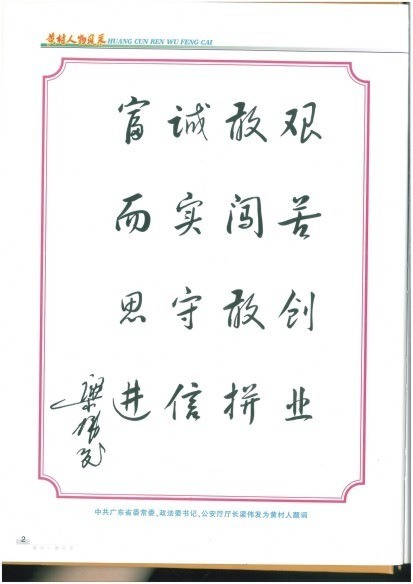 黄村人物风采 HUANG CUN REN WU FENG CAI
艰苦创业
敢闯敢拼
诚实守信
富而思进
梁伟发
中共广东省委常委、政法委书记、公安厅厅长梁伟发为黄村人题词
2